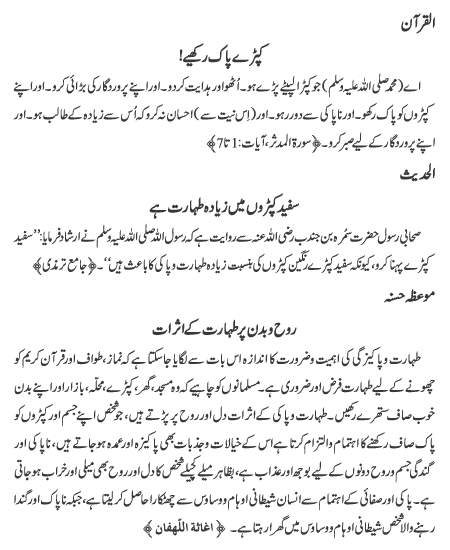 القرآن
کپڑے پاک رکھیے!
اے (محمد صلی اللہ علیہ وسلم) جو کپڑا لپیٹے پڑے ہو۔ اُٹھو اور ہدایت کردو۔ اور اپنے پروردگار کی بڑائی کرو۔ اور اپنے
کپڑوں کو پاک رکھو۔ اور ناپاکی سے دور رہو۔ اور (اِس نیت سے) احسان نہ کرو کہ اُس سے زیادہ کے طالب ہو۔ اور
اپنے پروردگار کے لیے صبر کرو۔ ﴿سورۃ المدثر، آیات: 1 تا 7﴾
الحدیث
سفید کپڑوں میں زیادہ طہارت ہے
صحابی رسول حضرت سمُرہ بن جندب رضی اللہ عنہ سے روایت ہے کہ رسول اللہ صلی اللہ علیہ وسلم نے ارشاد فرمایا: ’’سفید
کپڑے پہنا کرو، کیونکہ سفید کپڑے رنگین کپڑوں کی بنسبت زیادہ طہارت و پاکی کا باعث ہیں‘‘۔ ﴿جامع ترمذی﴾
موعظہ حسنہ
روح و بدن پر طہارت کے اثرات
طہارت و پاکیزگی کی اہمیت و ضرورت کا اندازہ اس بات سے لگایا جاسکتا ہے کہ نماز، طواف اور قرآن کریم کو
چھونے کے لیے طہارت فرض اور ضروری ہے۔ مسلمانوں کو چاہیے کہ وہ مسجد، گھر، کپڑے، محلّہ، بازار اور اپنے بدن
خوب صاف ستھرے رکھیں۔ طہارت و پاکی کے اثرات دل اور روح پر پڑتے ہیں، جو شخص اپنے جسم اور کپڑوں کو
پاک صاف رکھنے کا اہتمام و التزام کرتا ہے اس کے خیالات و جذبات بھی پاکیزہ اور عمدہ ہوجاتے ہیں، ناپاکی اور
گندگی جسم و روح دونوں کے لیے بوجھ اور عذاب ہے، بظاہر میلے کچیلے شخص کا دل اور روح بھی میلی اور خراب ہوجاتی
ہے۔ پاکی اور صفائی کے اہتمام سے انسان شیطانی اوہام و وساوس سے چھٹکارا حاصل کرلیتا ہے، جبکہ ناپاک اور گندا
رہنے والا شخص شیطانی اوہام و وساوس میں گھرا رہتا ہے۔ ﴿اغاثة اللّهفان﴾